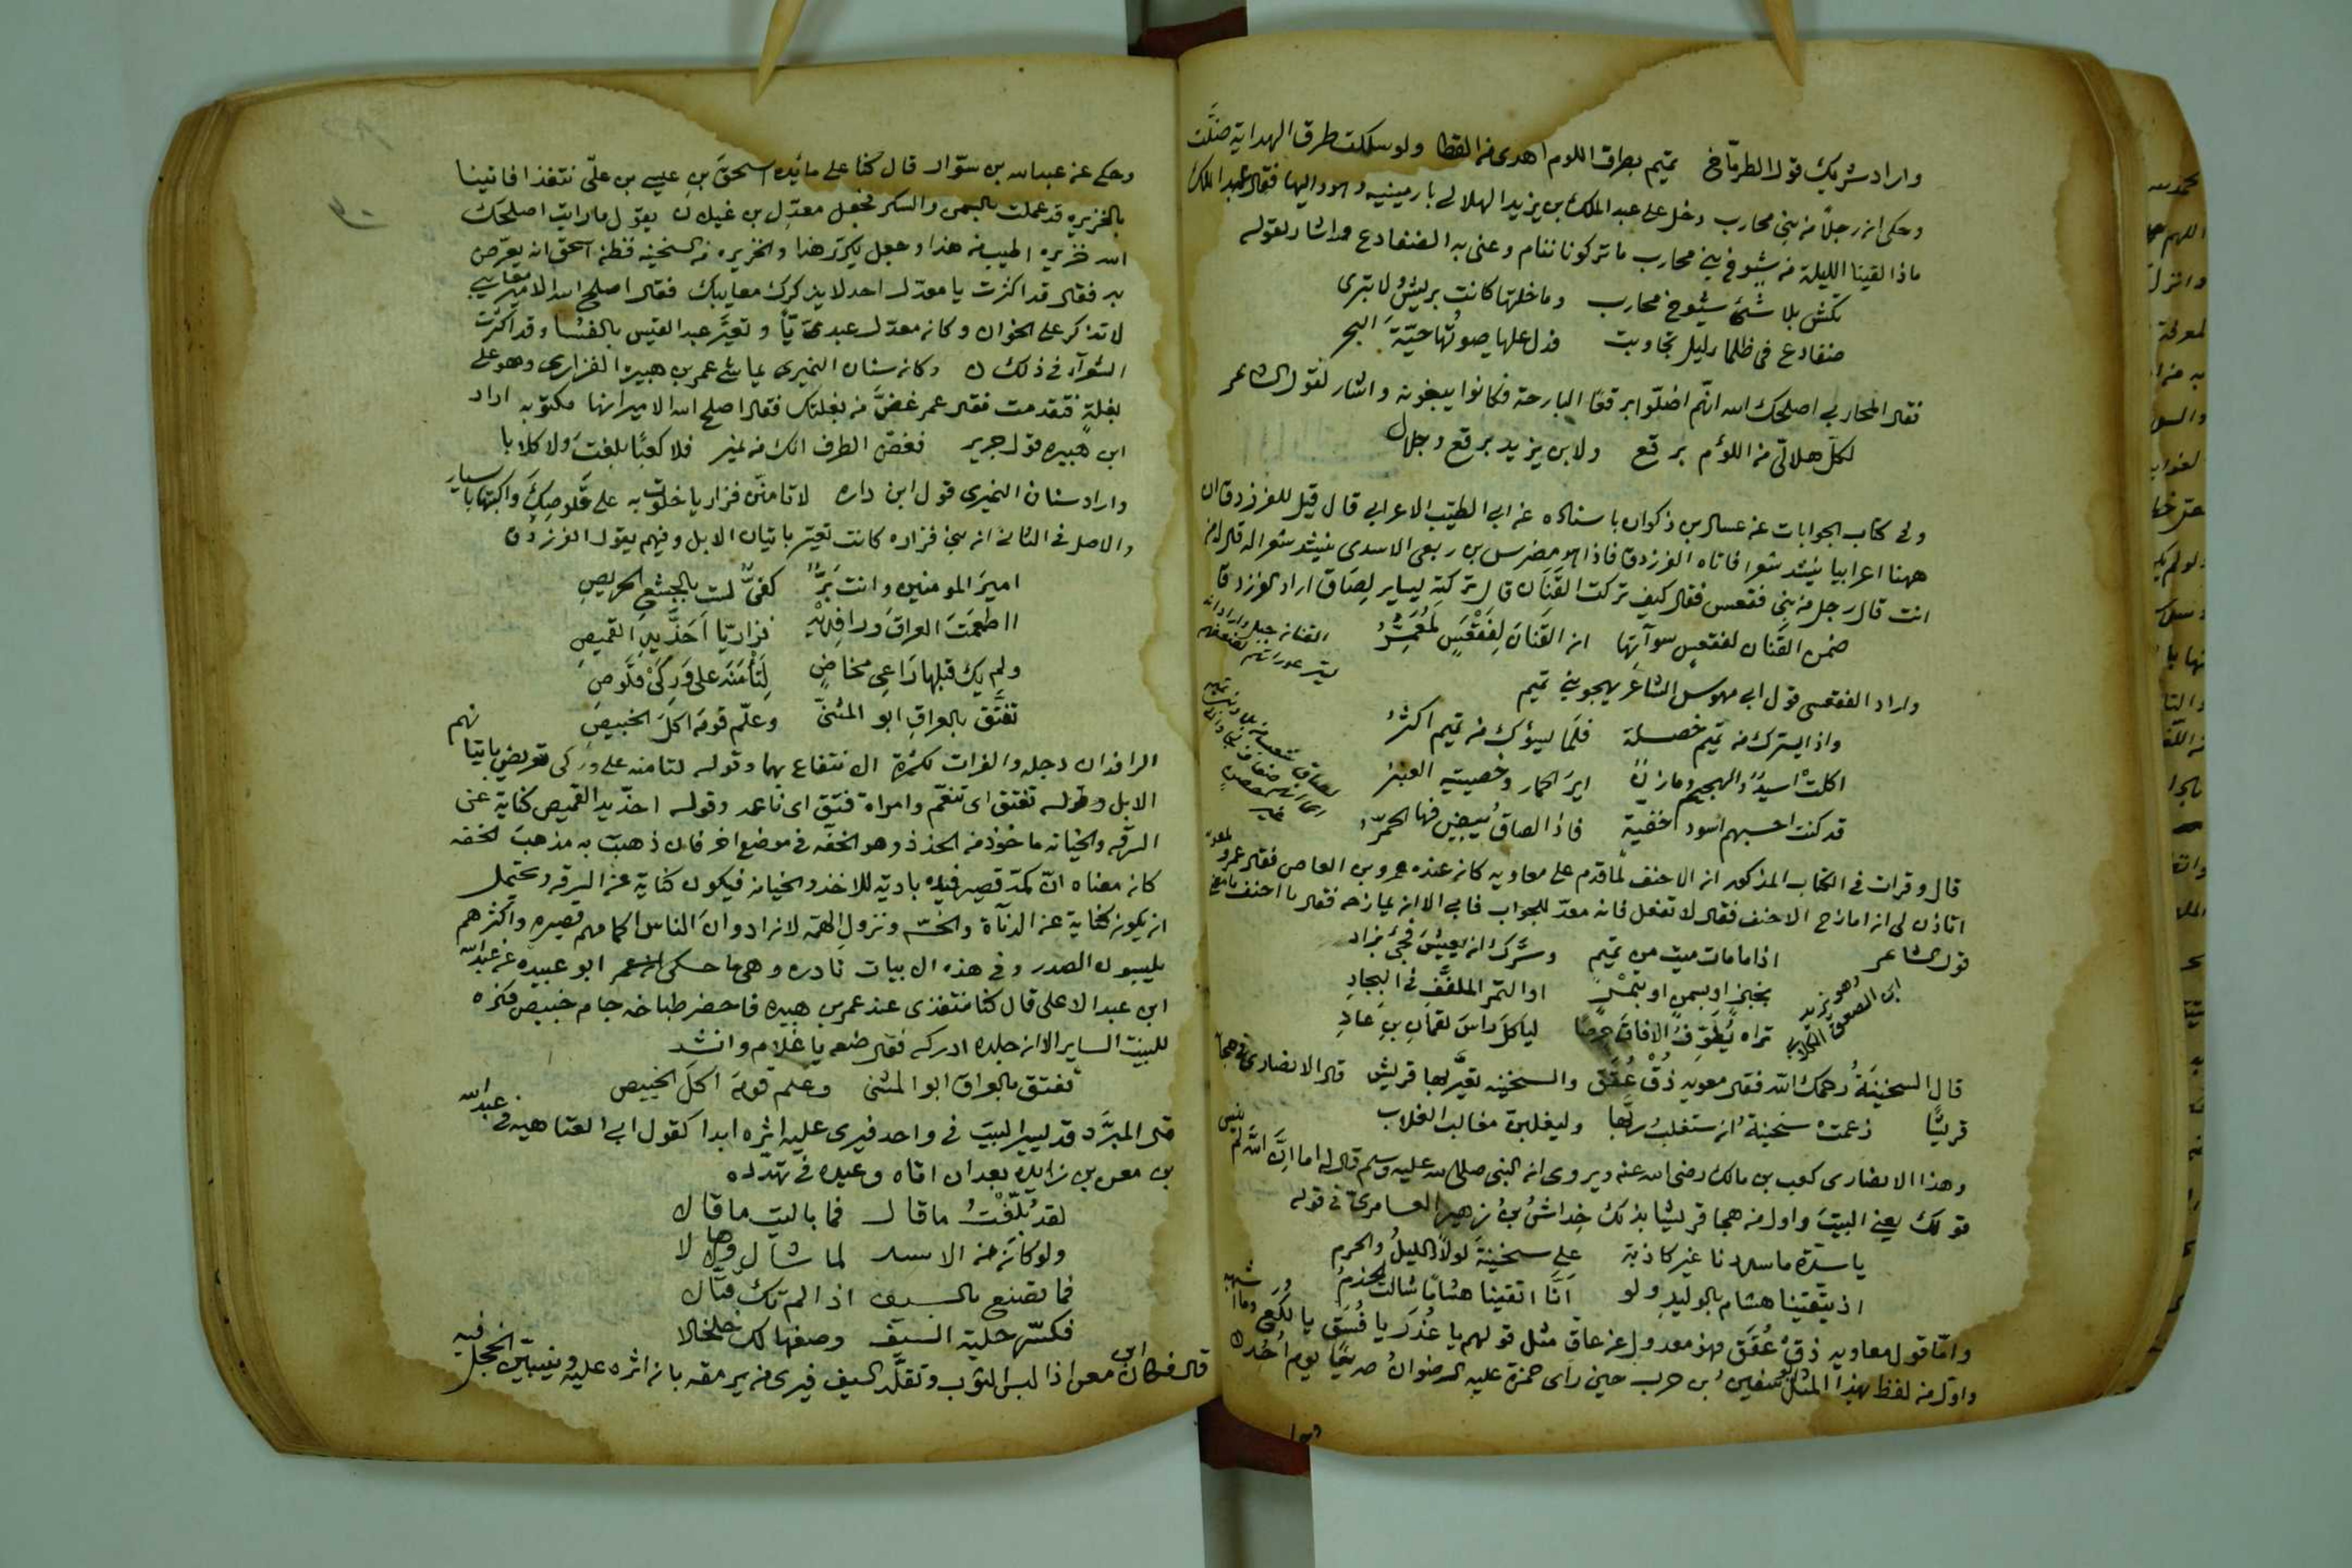 واراد شريك قول الطرماخ تميم بطرق اللوم اهدى من القطا ولو سلكت طرق الهداية ضلّت
وحكى ان رجلاً من بني محارب دخل على عبد الملك بن يزيد الهلالي بارمينيه وهو واليها فقال عبد الملك
ماذا لقينا الليلة من شيوخ بني محارب ما تركونا ننام وعنى به الضفادع واشار لقوله
تكش بلا شئ شيوخ محارب وما خلتها كانت بريش ولا تبرى
ضفادع في ظلماء ليل تجاوبت فدل عليها صوتها حيّة البحر
فقال المحاربي اصلحك الله انهم اضلّوا برقعًا البارحة فكانوا يبغونه واشار لقول الشاعر
لكل هلالي من اللؤم برقع ولابن يزيد برقع وجلال
وفي كتاب الجوابات عن عسال بن ذكوان باسناده عن ابي الطيب الاعرابي قال قيل للفرزدق ان
ههنا اعرابيا ينشد شعرا فاتاه الفرزدق فاذا هو مضرس بن ربعي الاسدي ينشد شعرا له قال له من
انت قال رجل من بني فقعس فقال كيف تركت القنان قال تركته يساير لصاق اراد الفرزدق
ضمن القنان لفقعس سوآتها ان القنان لفقعس لمعمّر
واراد الفقعسي قول ابي مهوس الشاعر يهجو بني تميم
واذا يسرك من تميم خصلة فلما يسوؤك من تميم اكثر
اكلت اسيّد والهجيم ومازن اير الحمار وخصيتيه العنبر
قد كنت احسبهم اسود خفية فاذا لصاق تبيض فيها الحمّر
قال وقرات في الكتاب المذكور ان الاحنف لما قدم على معاويه كان عنده عمرو بن العاص فقال عمرو
اتاذن لي ان امازح الاحنف فقال لا تفعل فانه معدّ للجواب فابى الا ان يمازحه فقال يا احنف
قول الشاعر اذا ما مات ميت من تميم وسرّك ان يعيش فجئ بزاد
وهو يزيد
ابن الصعق الكلابي
بخبز او بسمن او بتمر او التمر الملفّف في البجاد
تراه يطوّف الافاق حرصًا لياكل راس لقمان بن عاد
قال السخينة رحمك الله فقال معويه ذق عُقَق والسخينه تعيّر بها قريش قال الانصاري هجا
قريشًا زعمت سخينة ان ستغلب ربّها وليغلبن مغالب الغلاب
وهذا الانصاري كعب بن مالك رضى الله عنه ويروى ان النبي صلى الله عليه وسلم قال له اما ان الله لم ينس
قولك يعني البيت واول من هجا قريشا بذلك خداش بن زهير العامري في قوله
يا شدّة ما شددنا غير كاذبة على سخينة لولا الليل والحرم
اذ يتقينا هشام بالوليد ولو انّا اتقينا هشامًا شالت الجذم
وامّا قول معاويه ذق عُقَق فهو معدول عن عاق مثل قولهم يا غُدَر يا فُسَق يا لُكَع وما اشبهه
واول من لفظ بهذا المثل ابو سفين بن حرب حين راى حمزة عليه الرضوان صريعًا يوم اُحُد
وحكى عن عبدالله بن سوّار قال كنا على مائده اسحق بن عيسى بن علي نتغذا فاتينا
بالخزيره قد عملت بالسمن والسكر فجعل معدّل بن غيلان يقول ما رايت اصلحك
الله خزيره اطيب من هذا وجعل يكرّر هذا والخزيره من السخينه فظن اسحق انه يعرّض
به فقال قد اكثرت يا معدّل احدلا يذكرك معايبك فقال اصلح الله الامير معايبي
لا تذكر على الخوان وكان معدّل عبديّا وتعيّر عبد القيس بالفسا وقد اكثرت
الشعرآء في ذلك وكان سنان النميري يماشي عمر بن هبيره الفزاري وهو على
بغلةٍ فتقدمت فقال عمر غضّ من بغلتك فقال اصلح الله الامير انها مكتوبه اراد
ابن هبيره قول جرير فغضّ الطرف انك من نمير فلا كعبًا بلغت ولا كلابا
واراد سنان النميري قول ابن داره لا تامننّ فزاريا خلوت به على قلوصك واكتبها باسيار
والاصل في الثاني ان بني فزاره كانت تعيّر باتيان الابل وفيهم يقول الفرزدق
امير المومنين وانت برٌّ كفيٌّ لست بالجشع الحريص
ااطعمت العراق ورافديه فزاريّا احذّ يد القميص
ولم يك قبلها راعى مخاضٍ لتأمنه على وركى قلوص
تفتّق بالعراق ابو المثنّى وعلّم قومه اكل الخبيص
الرافدان دجله والفرات لكثرة الانتفاع بهما وقوله لتامنه على وركى تعريض باتيانهم
الابل وقوله تفتق اى تنعّم وامراة فتق اى ناعمه وقوله احذّ يد القميص كناية عن
السرقه والخيانه ماخوذ من الحذذ وهو الخفّه في موضع اخر فان ذهبت به مذهب الخفه
كان معناه انّ كمّه قصير فيده بادية للاخذ والخيانه فيكون كناية عن السرقه ويحتمل
ان يكون كناية عن الدنآة والخسّه ونزول الهمّه لانه اراد وان الناس اكمامهم قصيره واكثرهم
يلبسون الصدر وفي هذه الابيات نادره وهي ما حكى ابو عبيده عن عبدالله
ابن عبد الاعلى قال كنا نتغذى عند عمر بن هبيره فاحضر طباخه جام خبيص فكره
للبيت الساير الا ان جلده ادركه فقال ضعه يا غلام وانشد
تفتق بالعراق ابو المثنى وعلم قومه اكل الخبيص
قال المبرّد قد يسير البيت في واحد فيرى عليه اثره ابدا كقول ابي العتاهيه في عبدالله
بن معن بن زايده بعد ان اتاه وعيده في تهدّده
لقد بُلّغْتُ ما قال فما باليت ما قال
ولو كان من الاسد لما شال وصالا
فما تصنع بالسيف اذا لم تك قتّال
فكسّر حلية السيف وصغها لك خلخالا
قال فكان ابن معن اذا لبس الثوب وتقلّد السيف فيرى من يرمقه بان اثره عليه ويتبيّن الخجل فيه